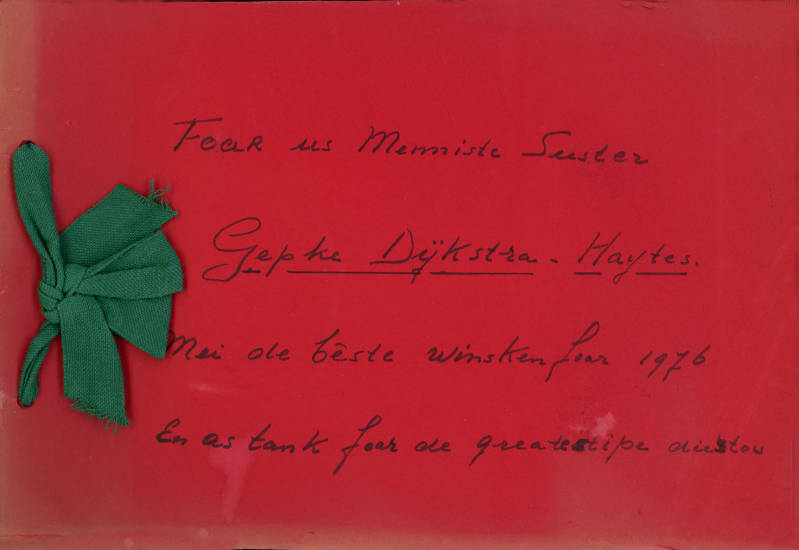 Foar us Menniste Suster
Gepke Dÿkstra - Haytes.
Mei de bêste winsken foar 1976
En as tank foar de greate stipe